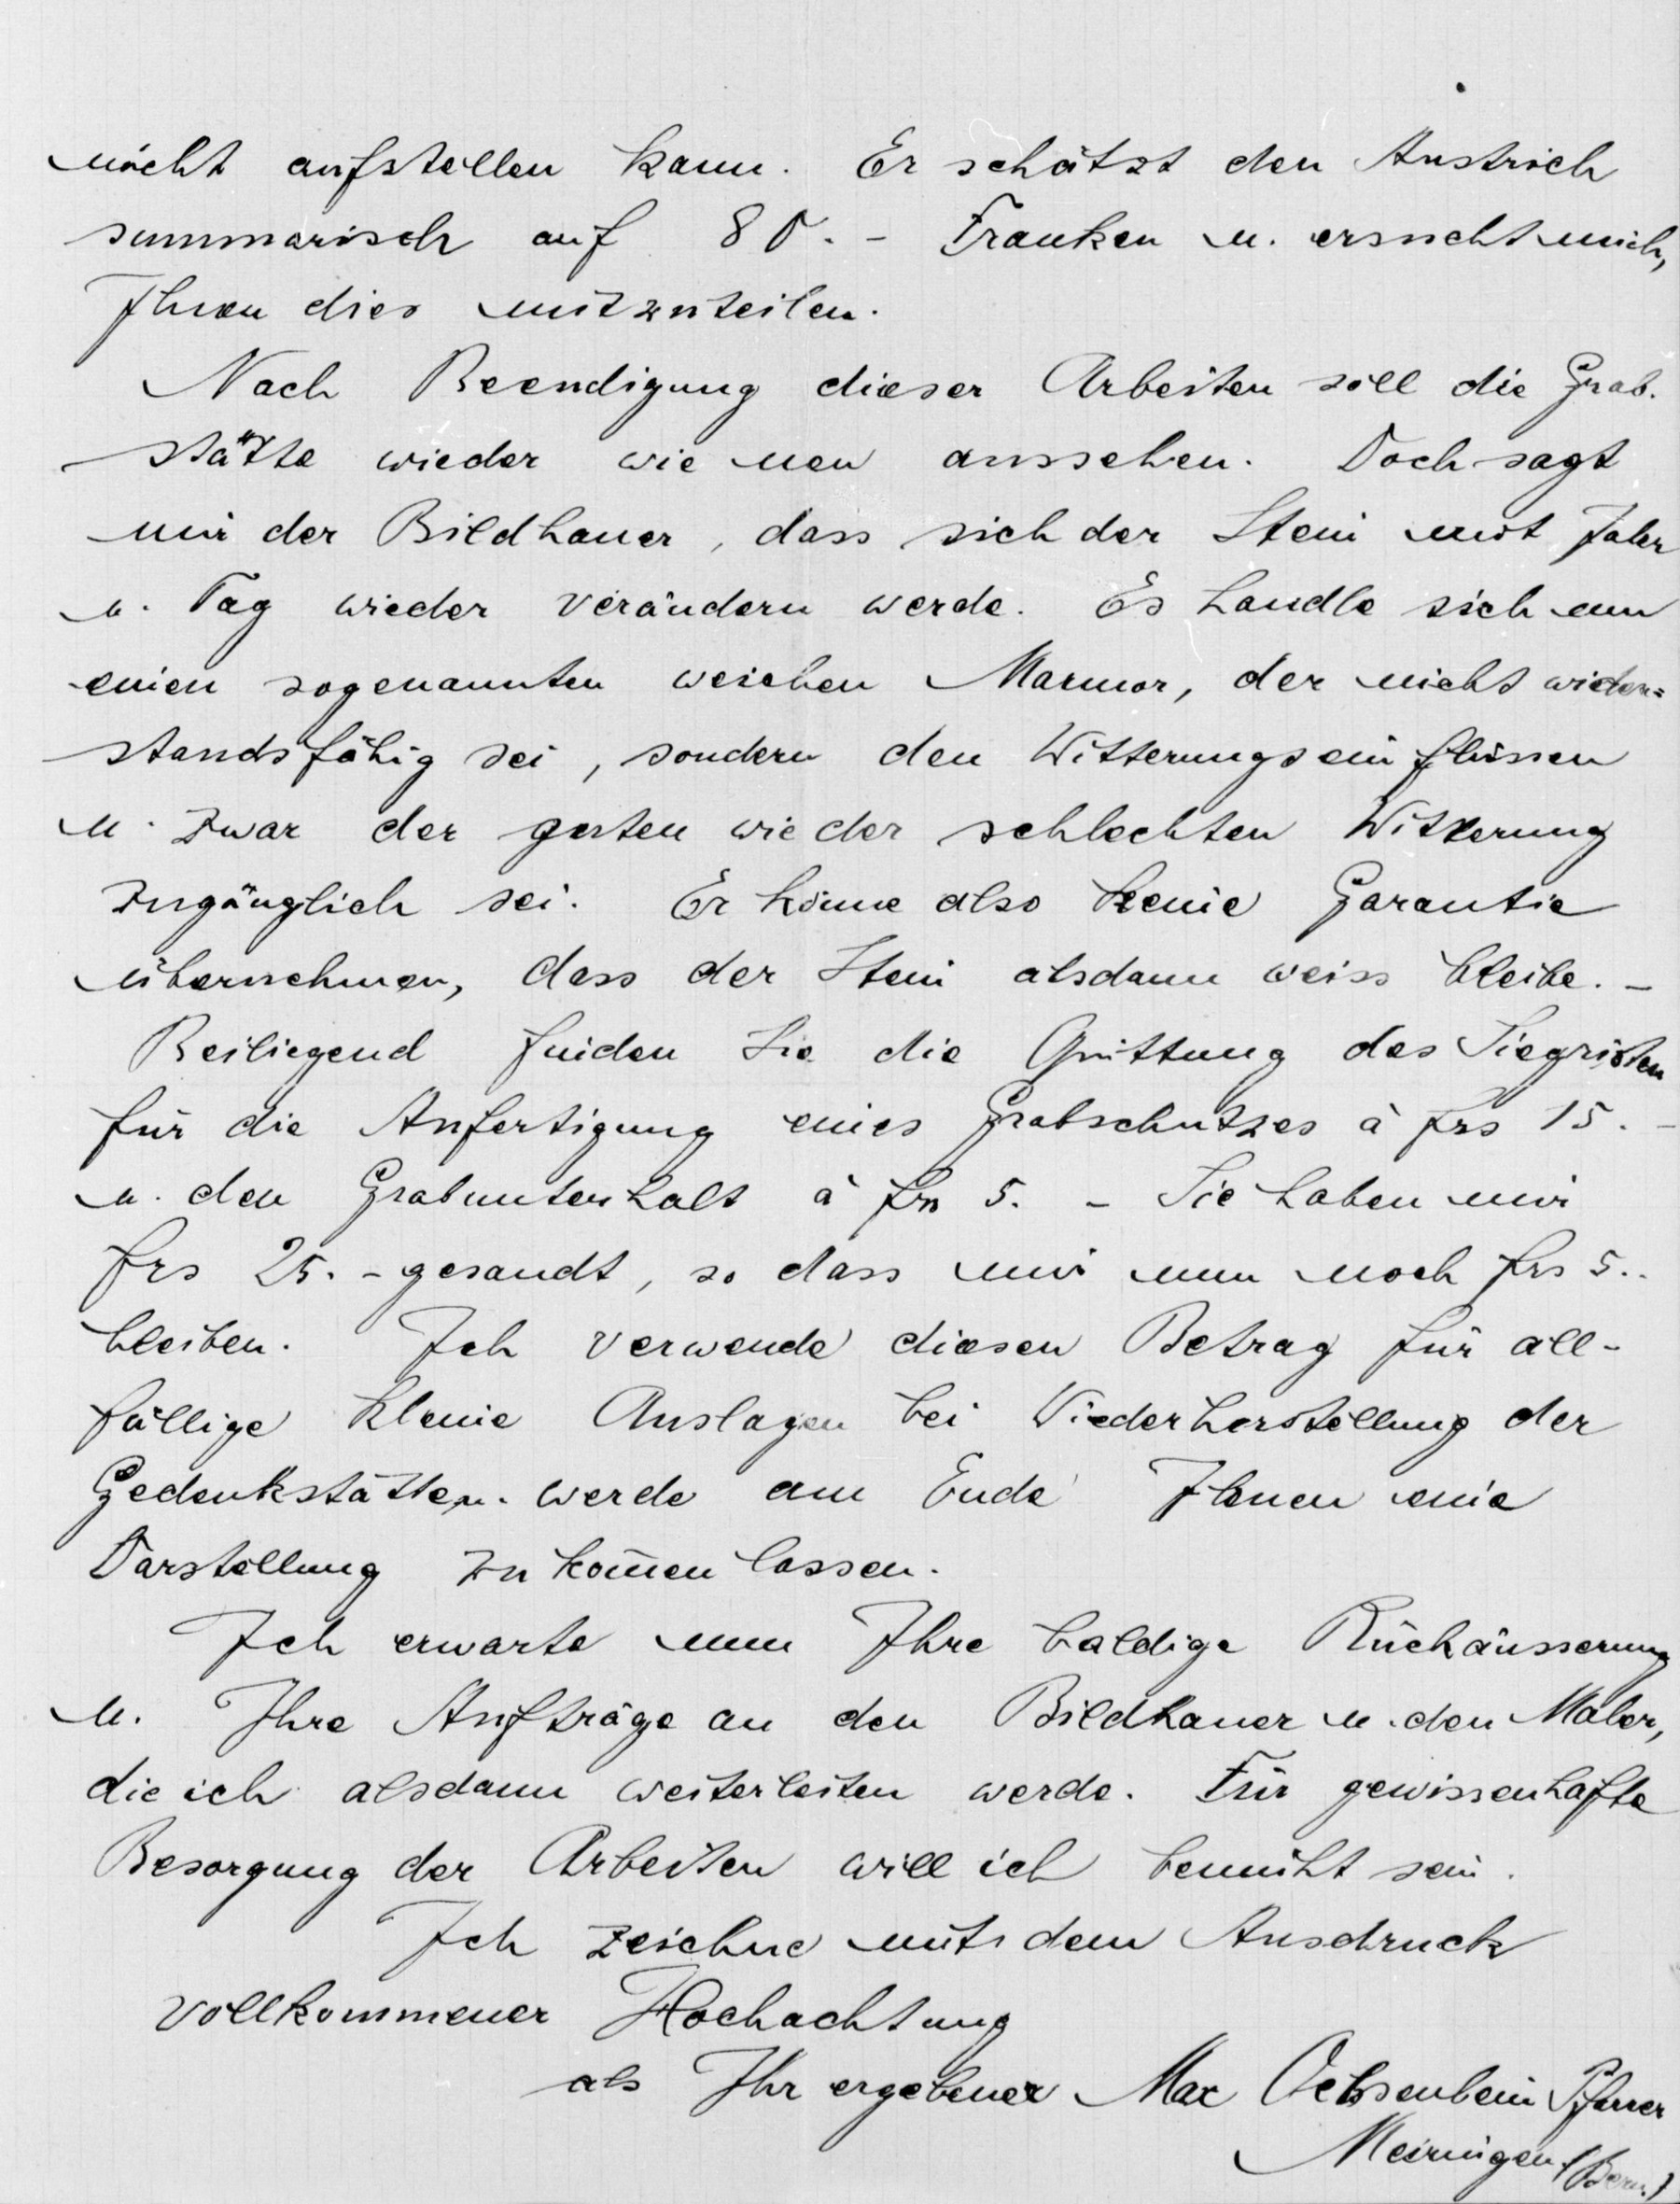 nicht aufstellen kann. Er schätzt den Anstrich
summarisch auf 80.- Franken u. ersucht mich,
Ihnen dies mitzuteilen.
Nach Beendigung dieser Arbeiten soll die Grab-
stätte wieder wie neu aussehen. Doch sagt
mir der Bildhauer, dass sich der Stein mit Jahr
u. Tag wieder verändern werde. Es handle sich um
einen sogenannten weichen Marmor, der nicht wider=
standsfähig sei, sondern den Witterungseinflüssen
u. zwar der guten wie der schlechten Witterung
zugänglich sei. Er könne also keine Garantie
übernehmen, dass der Stein alsdann weiss bleibe. -
Beiliegend finden Sie die Quittung des Siegristen
für die Anfertigung eines Grabschutzes à frs 15.-
u. den Grabunterhalt à frs 5. - Sie haben mir
frs 25.- gesandt, so dass mir nun noch frs 5..
bleiben. Ich verwende diesen Betrag für all-
fällige kleine Auslagen bei Wiederherstellung der
Gedenkstätte u. werde am Ende Ihnen eine
Darstellung zu kom̄en lassen.
Ich erwarte nun Ihre baldige Rückäusserung
u. Ihre Aufträge an den Bildhauer u. den Maler,
die ich alsdann weiterleiten werde. Für gewissenhafte
Besorgung der Arbeiten will ich bemüht sein.
Ich zeichne mit dem Ausdruck
vollkommener Hochachtung
als Ihr ergebener Max Ochsenbein Pfarrer
Meiringen (Bern.)